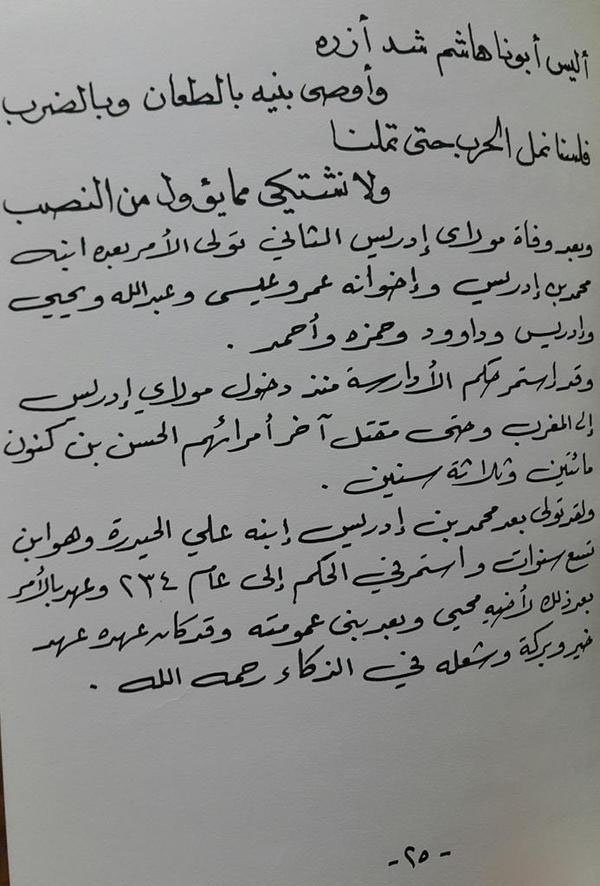 أليس أبونا هاشم شد أزره
وأوصى بنيه بالطعان وبالضرب
فلسنا نمل الحرب حتى تملنا
ولا نشتكي مما يؤول من النصب
وبعد وفاة مولاي إدريس الثاني تولى الأمر بعده ابنه
محمد بن إدريس وإخوانه عمر وعيسى وعبد الله ويحيى
وإدريس وداوود وحمزه وأحمد .
وقد استمر حكم الأدارسة منذ دخول مولاي إدريس
إلى المغرب وحتى مقتل آخر أمرائهم الحسن بن كنون
مائتين وثلاثة سنين .
ولقد تولى بعد محمد بن إدريس إبنه علي الحيدرة وهو ابن
تسع سنوات واستمر في الحكم إلى عام ٢٣٤ وعهد بالأمر
بعد ذلك لأخيه محيى وبعد بني عمومته وقد كان عهده عهد
خير وبركة وشعله في الذكاء رحمه الله .
-٢٥-